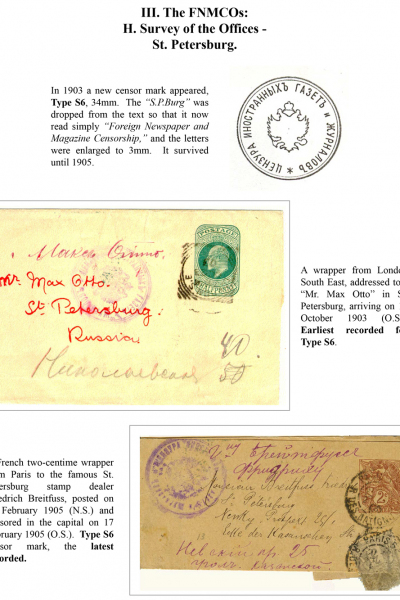 III. The FNMCOs:
H. Survey of the Offices -
St. Petersburg.
In 1903 a new censor mark appeared,
Type S6, 34mm. The "S.P.Burg" was
dropped from the text so that it now
read simply "Foreign Newspaper and
Magazine Censorship," and the letters
were enlarged to 3mm. It survived
until 1905.
ЦЕНЗУРА ИНОСТРАННЫХЪ ГАЗЕТЪ И ЖУРНАЛОВЪ
POSTAGE
Максъ Отто.
Mr. Max Otto.
St Petersburg.
Russia
Николаевская
40
50
A wrapper from Londo
South East, addressed to
"Mr. Max Otto" in S
Petersburg, arriving on
October 1903 (O.S.
Earliest recorded f
Type S6.
French two-centime wrapper
om Paris to the famous St.
ersburg stamp dealer
edrich Breitfuss, posted on
February 1905 (N.S.) and
sored in the capital on 17
bruary 1905 (O.S.). Type S6
sor mark, the latest
orded.
Брейтфусс
Фридриху
St Petersburg
Невскій пр. 25